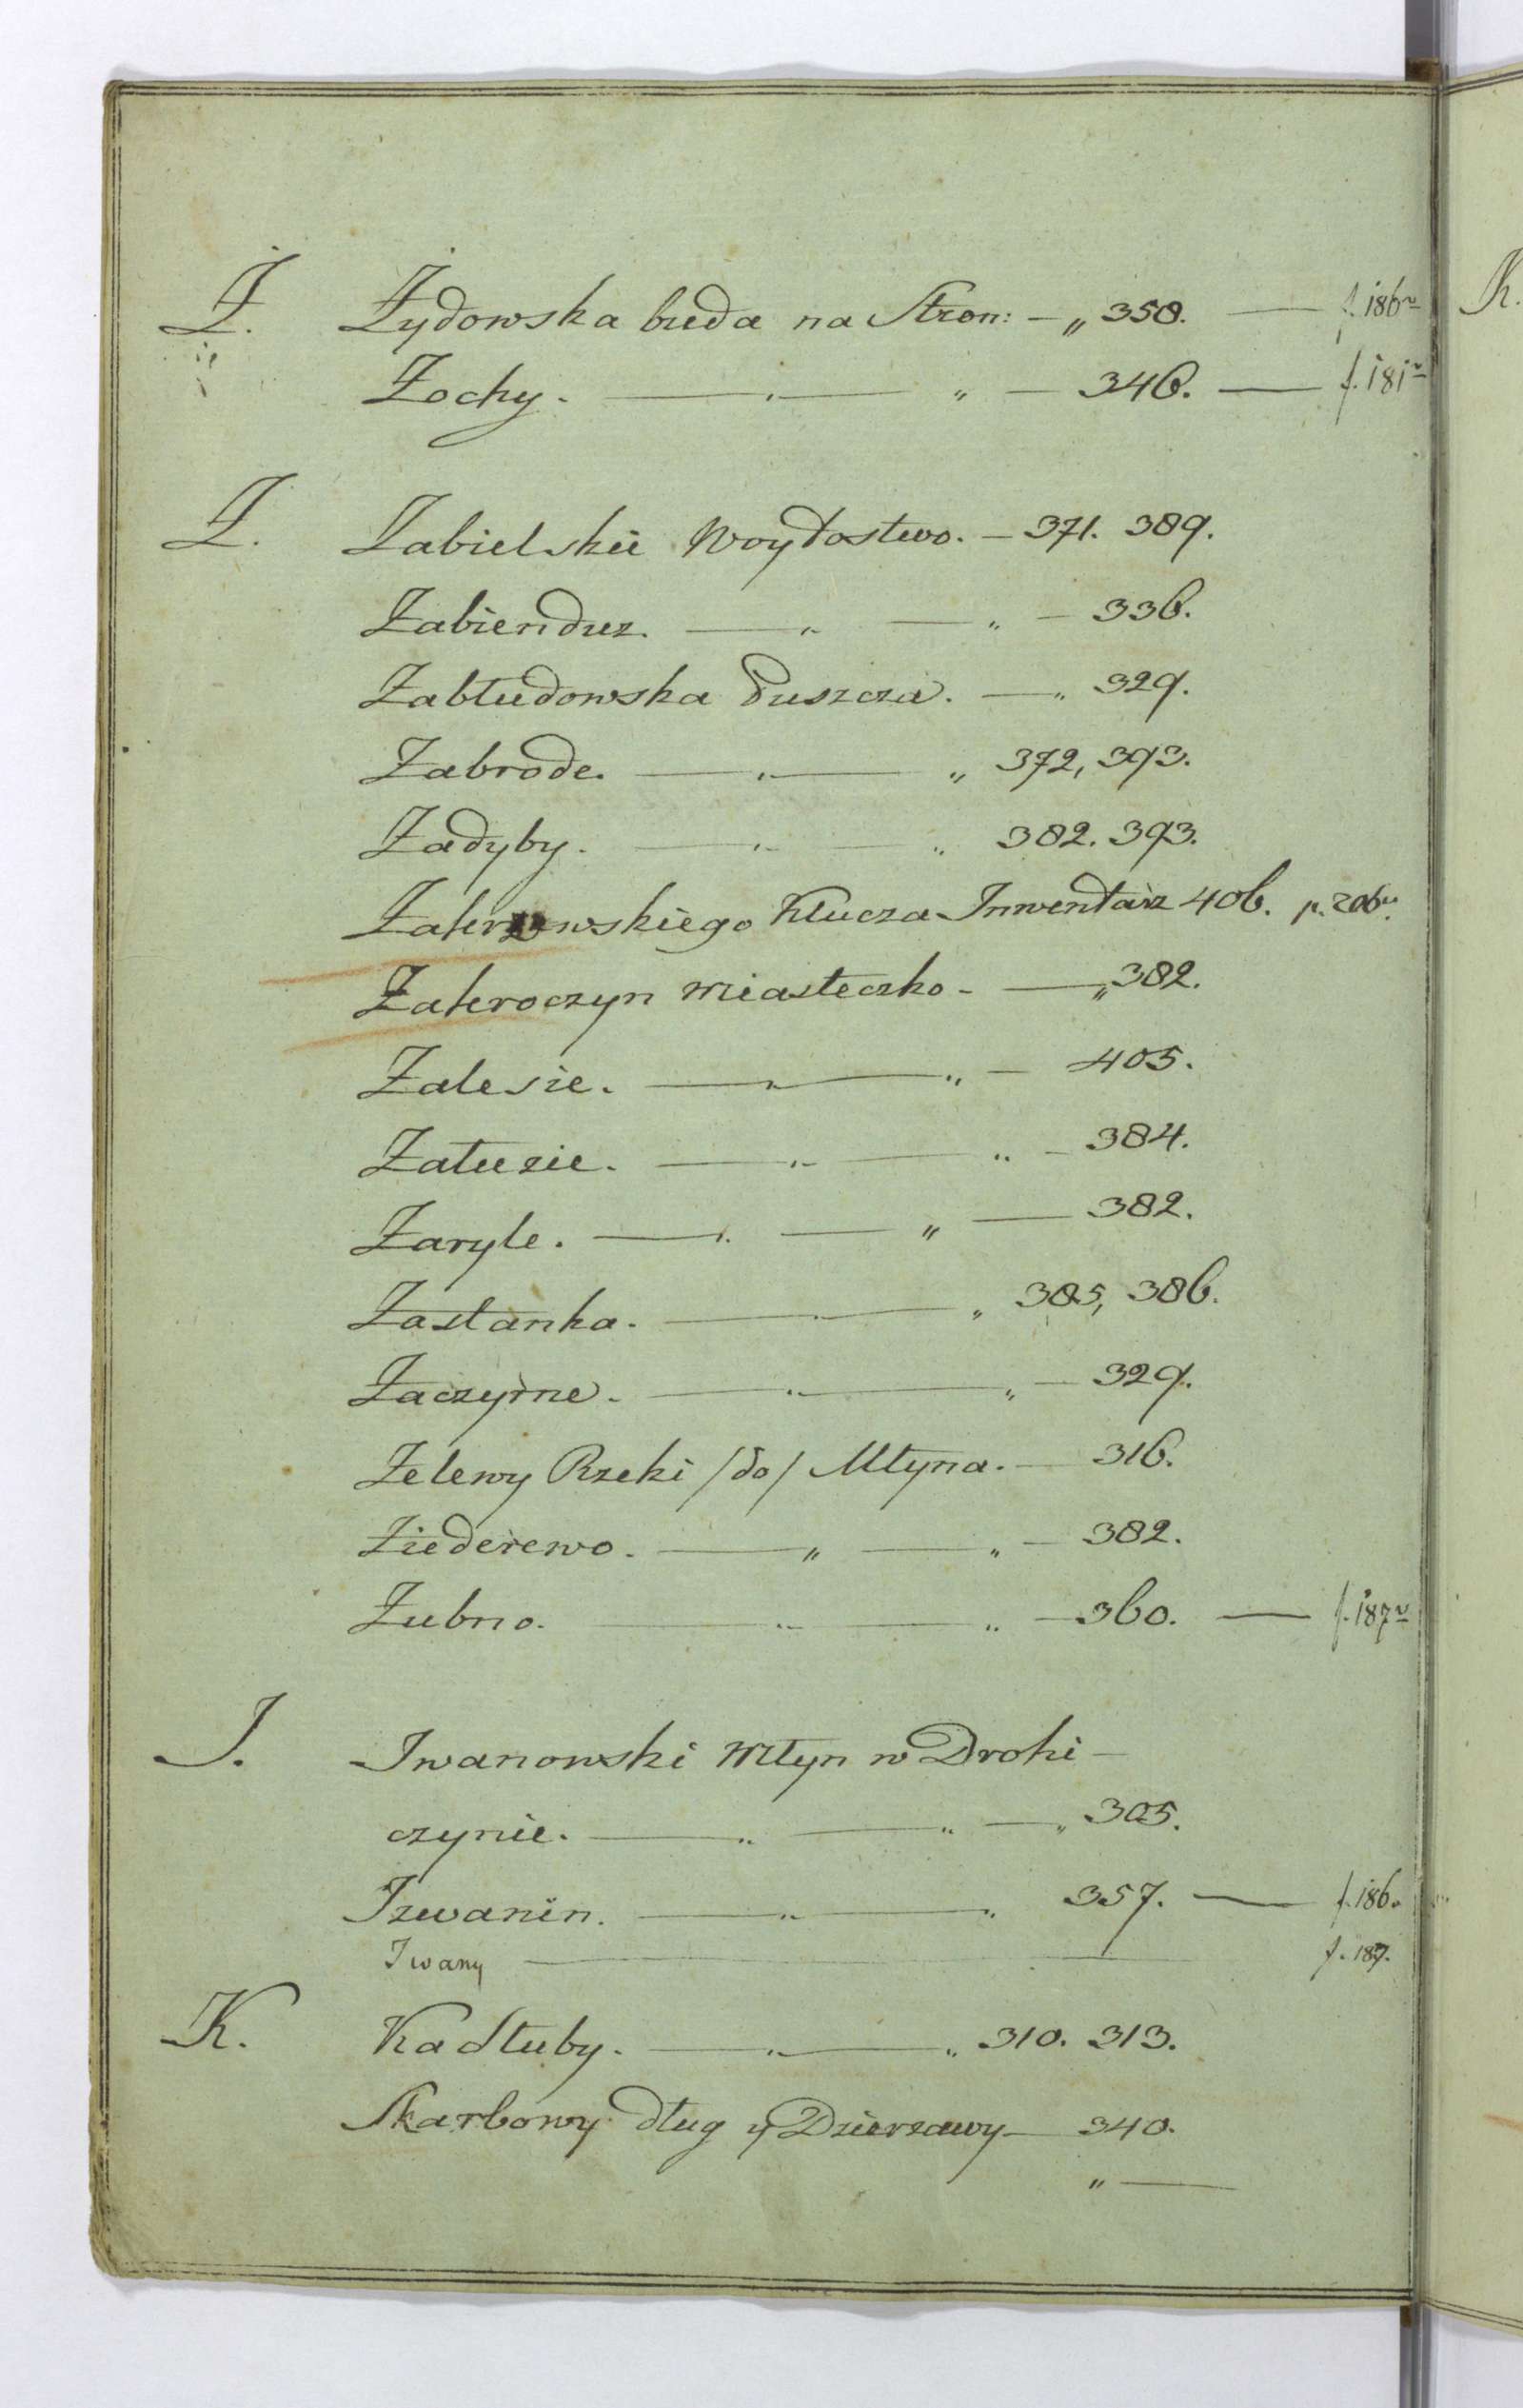 Ż. Żydowska buda na Stron: — „ 358. — f. 186v
Żochy. — „ — „ — 346. — f. 181v
Z. Zabielskie Woytostwo. — 371. 389.
Zabienduz. — „ — „ — 336.
Zabłudowska Puszcza. — „ 329.
Zabrode. — „ — „ 372, 393.
Zadyby. — „ — „ 382. 393.
Klucza Inwentarz 406. p. 206v.
Zakroczyn Miasteczko — „ 382.
Zalesie. — „ — „ — 405.
Załuzie. — „ — „ — 384.
Zaryle. — „ — „ — 382.
Zastanka. — „ — „ 385, 386.
Zaczyrne. — „ — „ — 329.
Zelewy Rzeki /do/ Młyna. — 316.
Ziederewo. — „ — „ — 382.
Zubno. — „ — „ — 360. — f. 187v
J. Jwanowski Młyn w Drohi-
czynie. — „ — „ — „ 305.
Jzwanin. — „ — „ 357. — f. 186.
Jwany — f. 187.
K. Kadłuby. — „ — „ 310. 313.
Skarbowy dług y Dzierzawy — 340.
„ —
K.